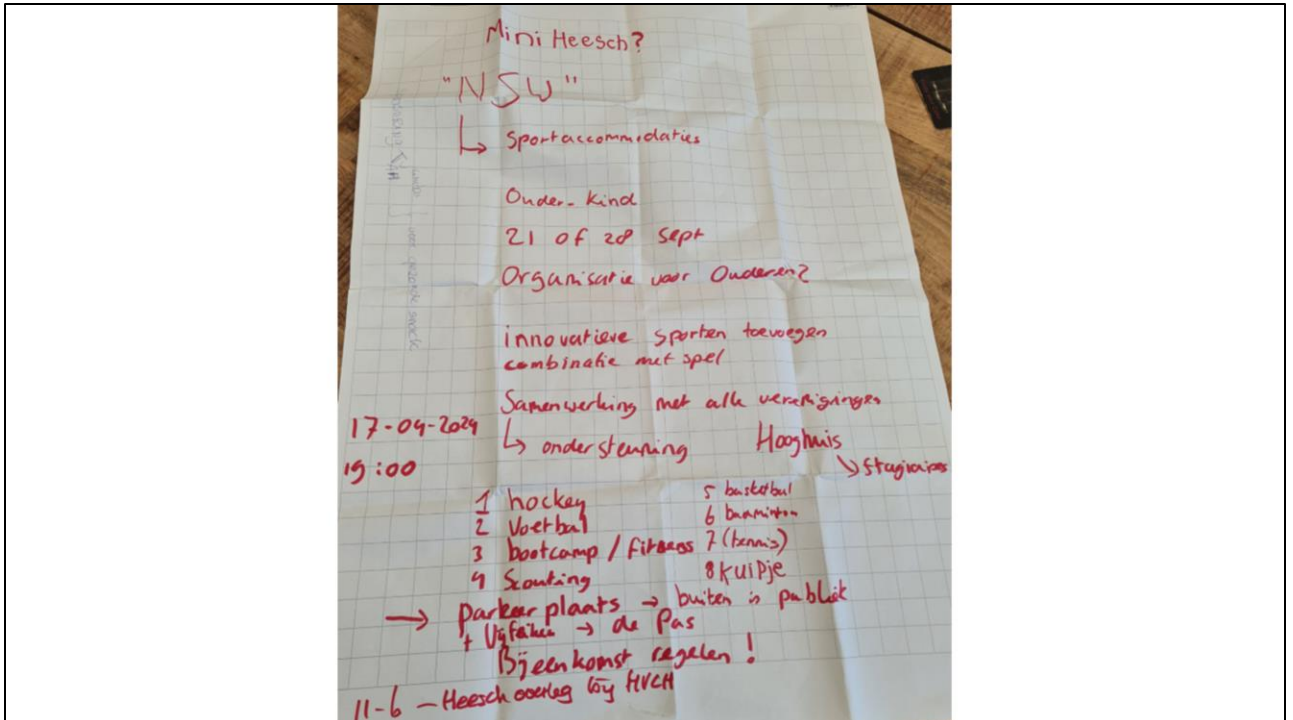 Mini Heesch?
"NSW"
↳ Sportaccommodaties
Ouder-kind
21 of 28 sept
Organisatie voor Ouderen?
innovatieve sporten toevoegen
combinatie met spel
Samenwerking met alle verenigingen
17-04-2024
19:00
↳ ondersteuning
Hooghuis
↘ stagiaires
1 hockey
2 Voetbal
3 bootcamp / fitness
4 Scouting
5 basketbal
6 badminton
7 (tennis)
8 Kuipje
→ Parkeerplaats → buiten is publiek
+ Vijfeiken → de Pas
Bijeenkomst regelen!
11-6 – Heesch overleg bij HVCH